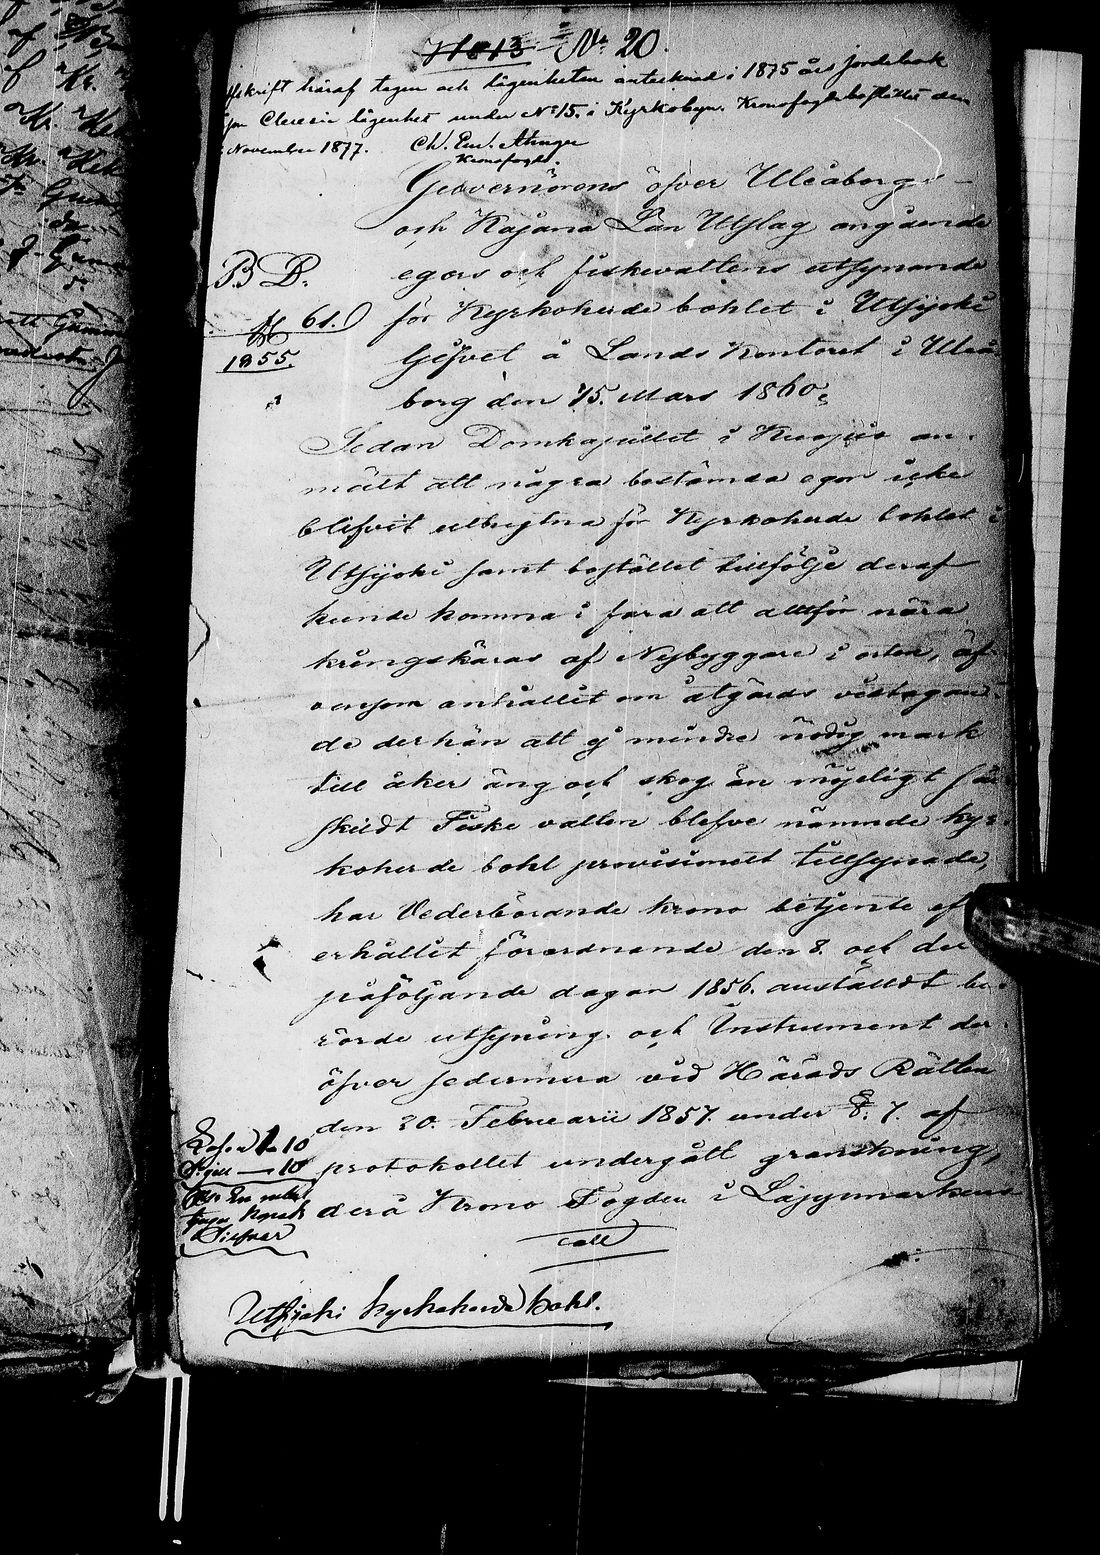 N:o 13 = N:o 20.
afskrift häraf tagen och lägenheten antecknad i 1875 års jordebok
som Clerecie lägenhet under No 15. i Kyrkobyn. Kronofogdebostället den
November 1877. Ch. Em.
Kronofogde.
Gouvernörens öfver Uleåborgs
och Kajana Län Utslag angående
egors och fiskevattens utsynande
för Kyrkoherde bohlet i Utsjoki
Gifvet å Lands Kontoret i Uleå
borg den 15. Mars 1860.
B D.
No 61.
1855.
Sedan Domkapitlet i Kuopio an-
mält att några bestämda egor icke
blifvit utbrytna för Kyrkoherde bohlet i
Utsjoki samt bostället tillfölje deraf
kunde komma i fara att alltför nära
kringskäras af Nybyggare i orten, äf-
vensom anhållit om åtgärds vidtagan-
de derhän att ej mindre nödig mark
till åker äng och skog än möjeligt sär
skildt Fiske vatten blefve nämnde kyr-
koherde bohl provisionelt tillsynade,
har Vederbörande krono betjente eft
erhållit förordnande den 8. och der
påföljande dagar 1856. anställdt be-
rörde utsyning och Instrument der-
öfver sedermera vid Härads Rätten
den 20. Februarii 1857. under §. 7. af
protokollet undergått granskning,
derå Krono Fogden i Lappmarken
call
Lösen 1 10
Sigill — 10
Säger En rubel
tjugu Kopek
Silfver
Utsjoki kyrkoherde bohl.